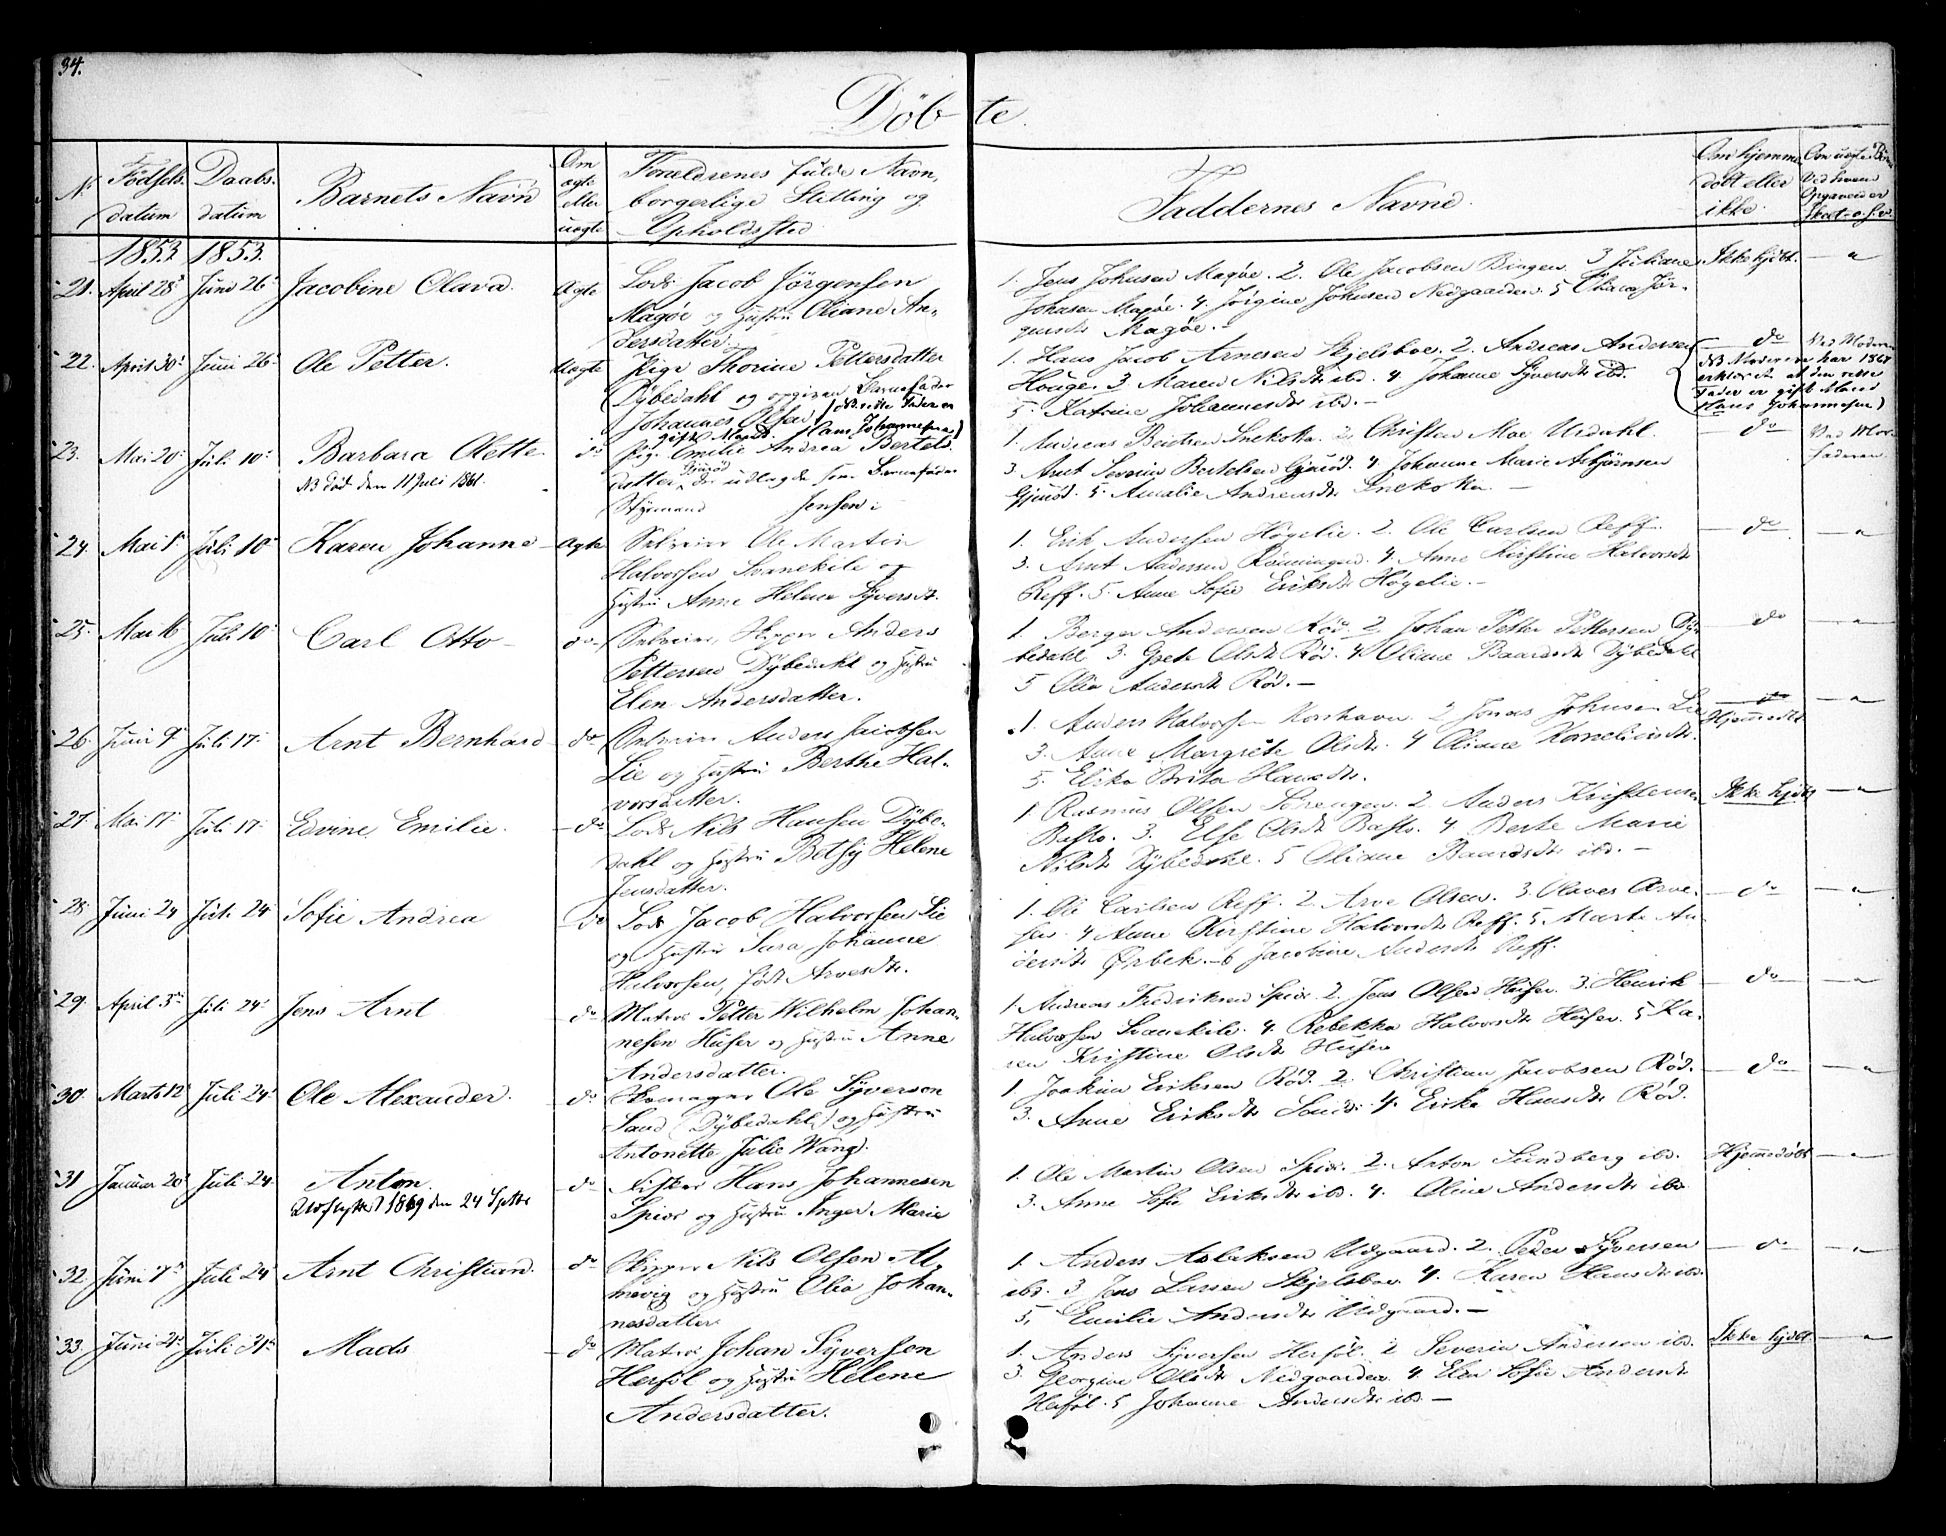 34.
Døbte.
No
Fødsels-
datum
Daabs-
datum
Barnets Navn
Om
ægte
eller
uægte
Forældrenes fulde Navn,
borgerlige Stilling og
Opholdssted
Faddernes Navne.
Om hjemme-
døbt eller
ikke.
Om uægte Børn
Ved hvem
Opgaven er
skeet o.s.v.
1853 1853.
21. April 28 Juni 26 Jacobine Olava. Ægte Lods Jacob Jørgensen
Magøe og Hustru Oliane An-
dersdatter.
1. Jens Johnsen Magøe. 2. Ole Jacobsen Bingen. 3 Juliane
Johnsen Magøe. 4. Jørgine Johnsen Nedgaarden. 5 Oliana Jør-
gensdt Magøe.
Ikke hjdbt.
22. April 30 Juni 26 Ole Petter. Uægte Pige Thorine Pettersdatter
Dybedahl og opgiven Barnefader
Johannes Olsen (NB rette Fader er
gift Mand Hans Johannesen)
1. Hans Jacob Arnesen Skjelsboe. 2. Andreas Andersen
Houge. 3. Maren Nilsdt ibd. 4 Johanne Syversdt ibd.
5. Katrine Johannesdt ibd. —
do Ved Moderen
NB Moderen har 1868
erklæret at den rette
Fader er gift Mand
Hans Johannesen)
23. Mai 20 Juli 10 Barbara Olette. do Pig. Emilie Andrea Bertels-
NB død den 11 Juli 1861.
datter Gjurød, der udlagde som Barnefader
Styrmand Jensen
1. Andreas Berntsen Snekotta. 2. Christen Moe Urdahl.
3. Arnt Severin Bertelsen Gjurød. 4 Johanne Marie Asbjørnsen
Gjurød. 5. Amalie Andreasdt Snekotta. —
do Ved Mor-
faderen
24. Mai 1 Juli 10 Karen Johanne Ægte Selveier Ole Martin
Halvorsen Svanekile og
Hustru Anne Helene Syversdt.
1. Erik Andersen Høgelie. 2. Ole Carlsen Reff.
3. Arnt Andersen Rønningen. 4. Anne Kirstine Halvorsdt
Reff. 5. Anne Sofie Eriksdt Høgelie. —
do
25. Mai 16 Juli 10 Carl Otto do Selveier, Skipper Anders
Pettersen Dybedahl og Hustru
Elen Andersdatter.
1. Berger Andersen Rød 2. Johan Petter Pettersen Dy-
bedahl 3. Grete Olsdt Rød. 4. Oliane Baardsdt Dybedahl
5 Olia Andersdt Rød. —
do
26. Juni 9 Juli 17 Arnt Bernhard do Selveier Anders Jacobsen
Lie og Hustru Berthe Hal-
vorsdatter.
1. Anders Halvorsen Korshavn. 2 Jonas Johnsen Lie
3. Anne Margrete Olsdt. 4 Oliane Kornelieusdt.
5. Elika Brita Hansdt.
Hjemmedbt
27. Mai 17 Juli 17 Edvine Emilie. do Lods Nils Hansen Dybe-
dahl og Hustru Betsy Helene
Jensdatter.
1. Rasmus Olsen Sørengen. 2. Anders Kristensen
Basto. 3. Else Olsdt Basto. 4 Berte Marie
Nilsdt Dybedahl. 5 Oliane Baardsdt ibd. —
Ikke hjdbt
28. Juni 24 Juli 24 Sofie Andrea do Lods Jacob Halvorsen Lie
og Hustru Sara Johanne
Halvorsen, født Arvesdt.
1. Ole Carlsen Reff. 2. Arve Olsen. 3. Olaves Arve-
sen. 4 Anne Kirstine Halvorsdt Reff. 5. Marte An-
dersdt Ørbek. — 6 Jacobine Andersdt Reff.
do
29. April 3 Juli 24 Jens Arnt do Matros Petter Wilhelm Johan-
nesen Huser og Hustru Anne
Andersdatter.
1. Andreas Fredriksen Spidr. 2. Jens Olsen Huser. 3. Henrik
Halvorsen Svanekile. 4. Rebekka Halvorsdt Huser. 5 Ka-
ren Kristine Olsdt Huser
do
30. Marts 12 Juli 24 Ole Alexander. do Skomager Ole Syversen
Sand (Dybedahl) og Hustru
Antonette Julie Wang.
1. Joakim Eriksen Rød. 2. Christian Jacobsen Rød.
3. Anne Eriksdt Sand. 4. Erika Hansdt Rød.
do
31 Januar 20 Juli 24 Anton. do Fisker Hans Johannesen
Udflyttet 1869 den 24 Septbr
Spior og Hustru Inger Marie
1. Ole Martin Olsen Spior. 2. Anton Sundberg ibd.
3. Anne Sofie Eriksdt ibd. 4. Oline Andersdt ibd
Hjemmedøbt
32. Juni 7 Juli 24 Arnt Christian. do Skipper Nils Olsen Al-
mevig og Hustru Olia Johan-
nesdatter
1. Anders Aslaksen Udgaard. 2. Peder Syversen
ibd. 3 Jens Larsen Skjelsboe. 4. Karen Hansdt ibd.
5. Emilie Andersdt Udgaard. —
do
33. Juni 21 Juli 31 Mads do Matros Johan Syversen
Herføl og Hustru Helene
Andersdatter.
1. Anders Syversen Herføl. 2 Severin Andersen ibd.
3. Georgine Olsdt Nedgaarden 4. Elen Sofie Andersdt
Herføl. 5 Johanne Andersdt ibd —
Ikke hjdbt